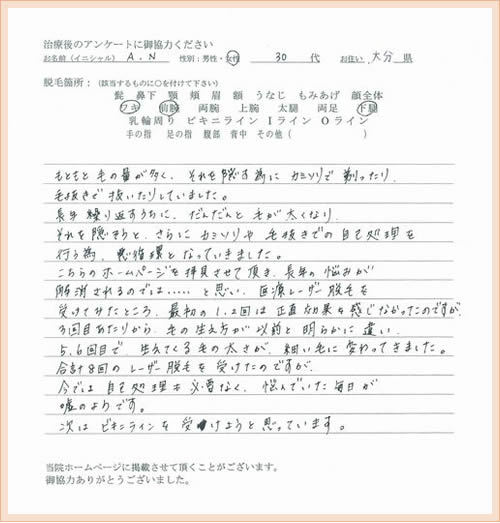 治療後のアンケートに御協力ください
お名前(イニシャル) A.N 性別:男性・女性 30 代 お住い 大分 県
脱毛箇所:(該当するものに○を付けて下さい)
髭 鼻下 顎 頬 眉 額 うなじ もみあげ 顔全体
ワキ 前腕 両腕 上腕 太腿 両足 下腿
乳輪周り ビキニライン Iライン Oライン
手の指 足の指 腹部 背中 その他( )
もともと毛の量が多く、それを隠す為にカミソリで剃ったり、
毛抜きで抜いたりしていました。
長年繰り返すうちに、だんだんと毛が太くなり、
それを隠そうと、さらにカミソリや毛抜きでの自己処理を
行う為、悪循環となっていきました。
こちらのホームページを拝見させて頂き、長年の悩みが
解消されるのでは……と思い、医療レーザー脱毛を
受けてみたところ、最初の1、2回は正直効果を感じなかったのですが、
3回目あたりから、毛の生え方が以前と明らかに違い、
5、6回目で、生えてくる毛の太さが、細い毛に変わってきました。
合計8回のレーザー脱毛を受けたのですが、
今では自己処理も必要なく、悩んでいた毎日が
嘘のようです。
次はビキニラインを受けようと思っています。
当院ホームページに掲載させて頂くことがございます。
御協力ありがとうございました。